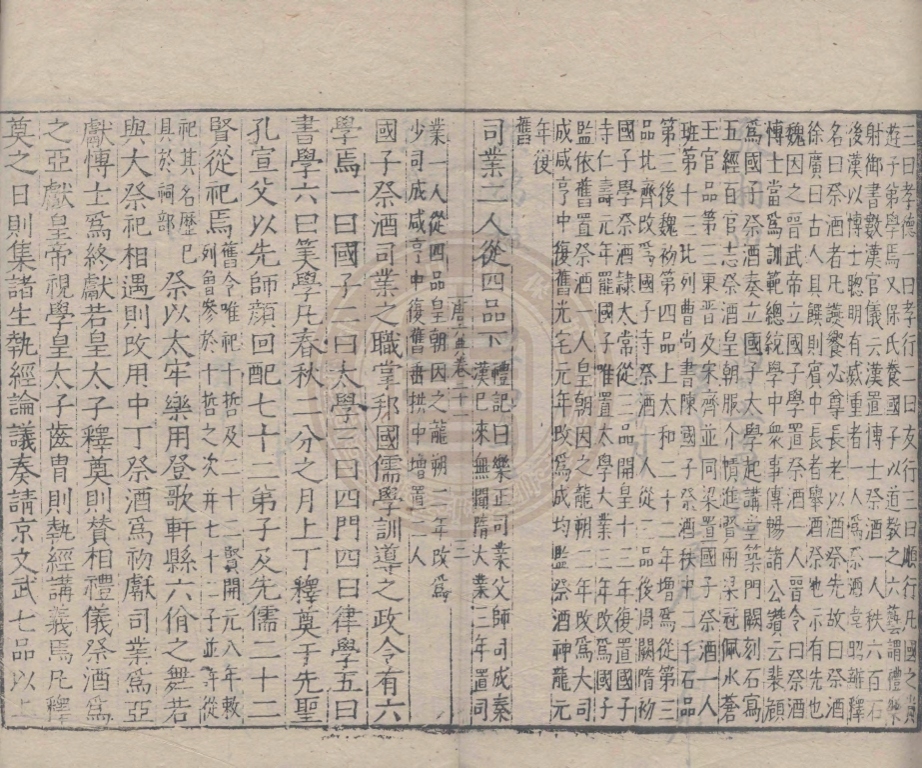 三曰孝德一曰孝行二曰友行三曰順行凡國之貴
遊子弟學焉又保氏養國子以道教之六藝謂禮樂
射御書數漢官儀云漢置博士祭酒一人秩六百石
後漢以博士聰明有威重者一人為祭酒韋昭辯釋
名曰祭酒者凡讌饗必尊長老以酒祭先故曰祭酒
徐廣曰古人具饌則賓中長者舉酒祭地示有先也
魏因之晉武帝立國子學置祭酒一人晉令曰祭酒
博士當為訓範總統學中眾事傅暢諸公讚云裴頠
為國子祭酒奏立國子太學起講堂築門闕刻石寫
五經百官志祭酒皇朝服介幘進賢兩梁冠佩水蒼
玉官品第三東晉及宋齊並同梁置國子祭酒一人
班第十三比列曹尚書陳國子祭酒秩中二千石品
第三後魏初第四品上太和二十二年增為從第三
品北齊改為國子寺祭酒一人從三品後周闕隋初
國子學祭酒隷太常從三品開皇十三年復置國子
寺仁壽元年罷國子唯置太學大業三年改為國子
監依舊置祭酒一人皇朝因之龍朔二年改為大司
成咸亨中復舊光宅元年改為成均監祭酒神龍元
年復
舊
司業二人從四品下禮記曰樂正司業父師司成秦
漢已來無聞隋大業三年置司
業一人從四品皇朝因之龍朔二年改為
少司成咸亨中復舊垂拱中增置二人
國子祭酒司業之職掌邦國儒學訓導之政令有六
學焉一曰國子二曰太學三曰四門四曰律學五曰
書學六曰筭學凡春秋二分之月上丁釋奠于先聖
孔宣父以先師顏回配七十二弟子及先儒二十二
賢從祀焉舊令唯祀十哲及二十二賢開元八年敕
列曾參於十哲之次并七十二子並許從
祀其名歷已
具於祠部祭以太牢樂用登歌軒縣六佾之舞若
與大祭祀相遇則改用中丁祭酒為初獻司業為亞
獻博士為終獻若皇太子釋奠則贊相禮儀祭酒為
之亞獻皇帝視學皇太子齒胄則執經講義焉凡釋
奠之日則集諸生執經論議奏請京文武七品以上